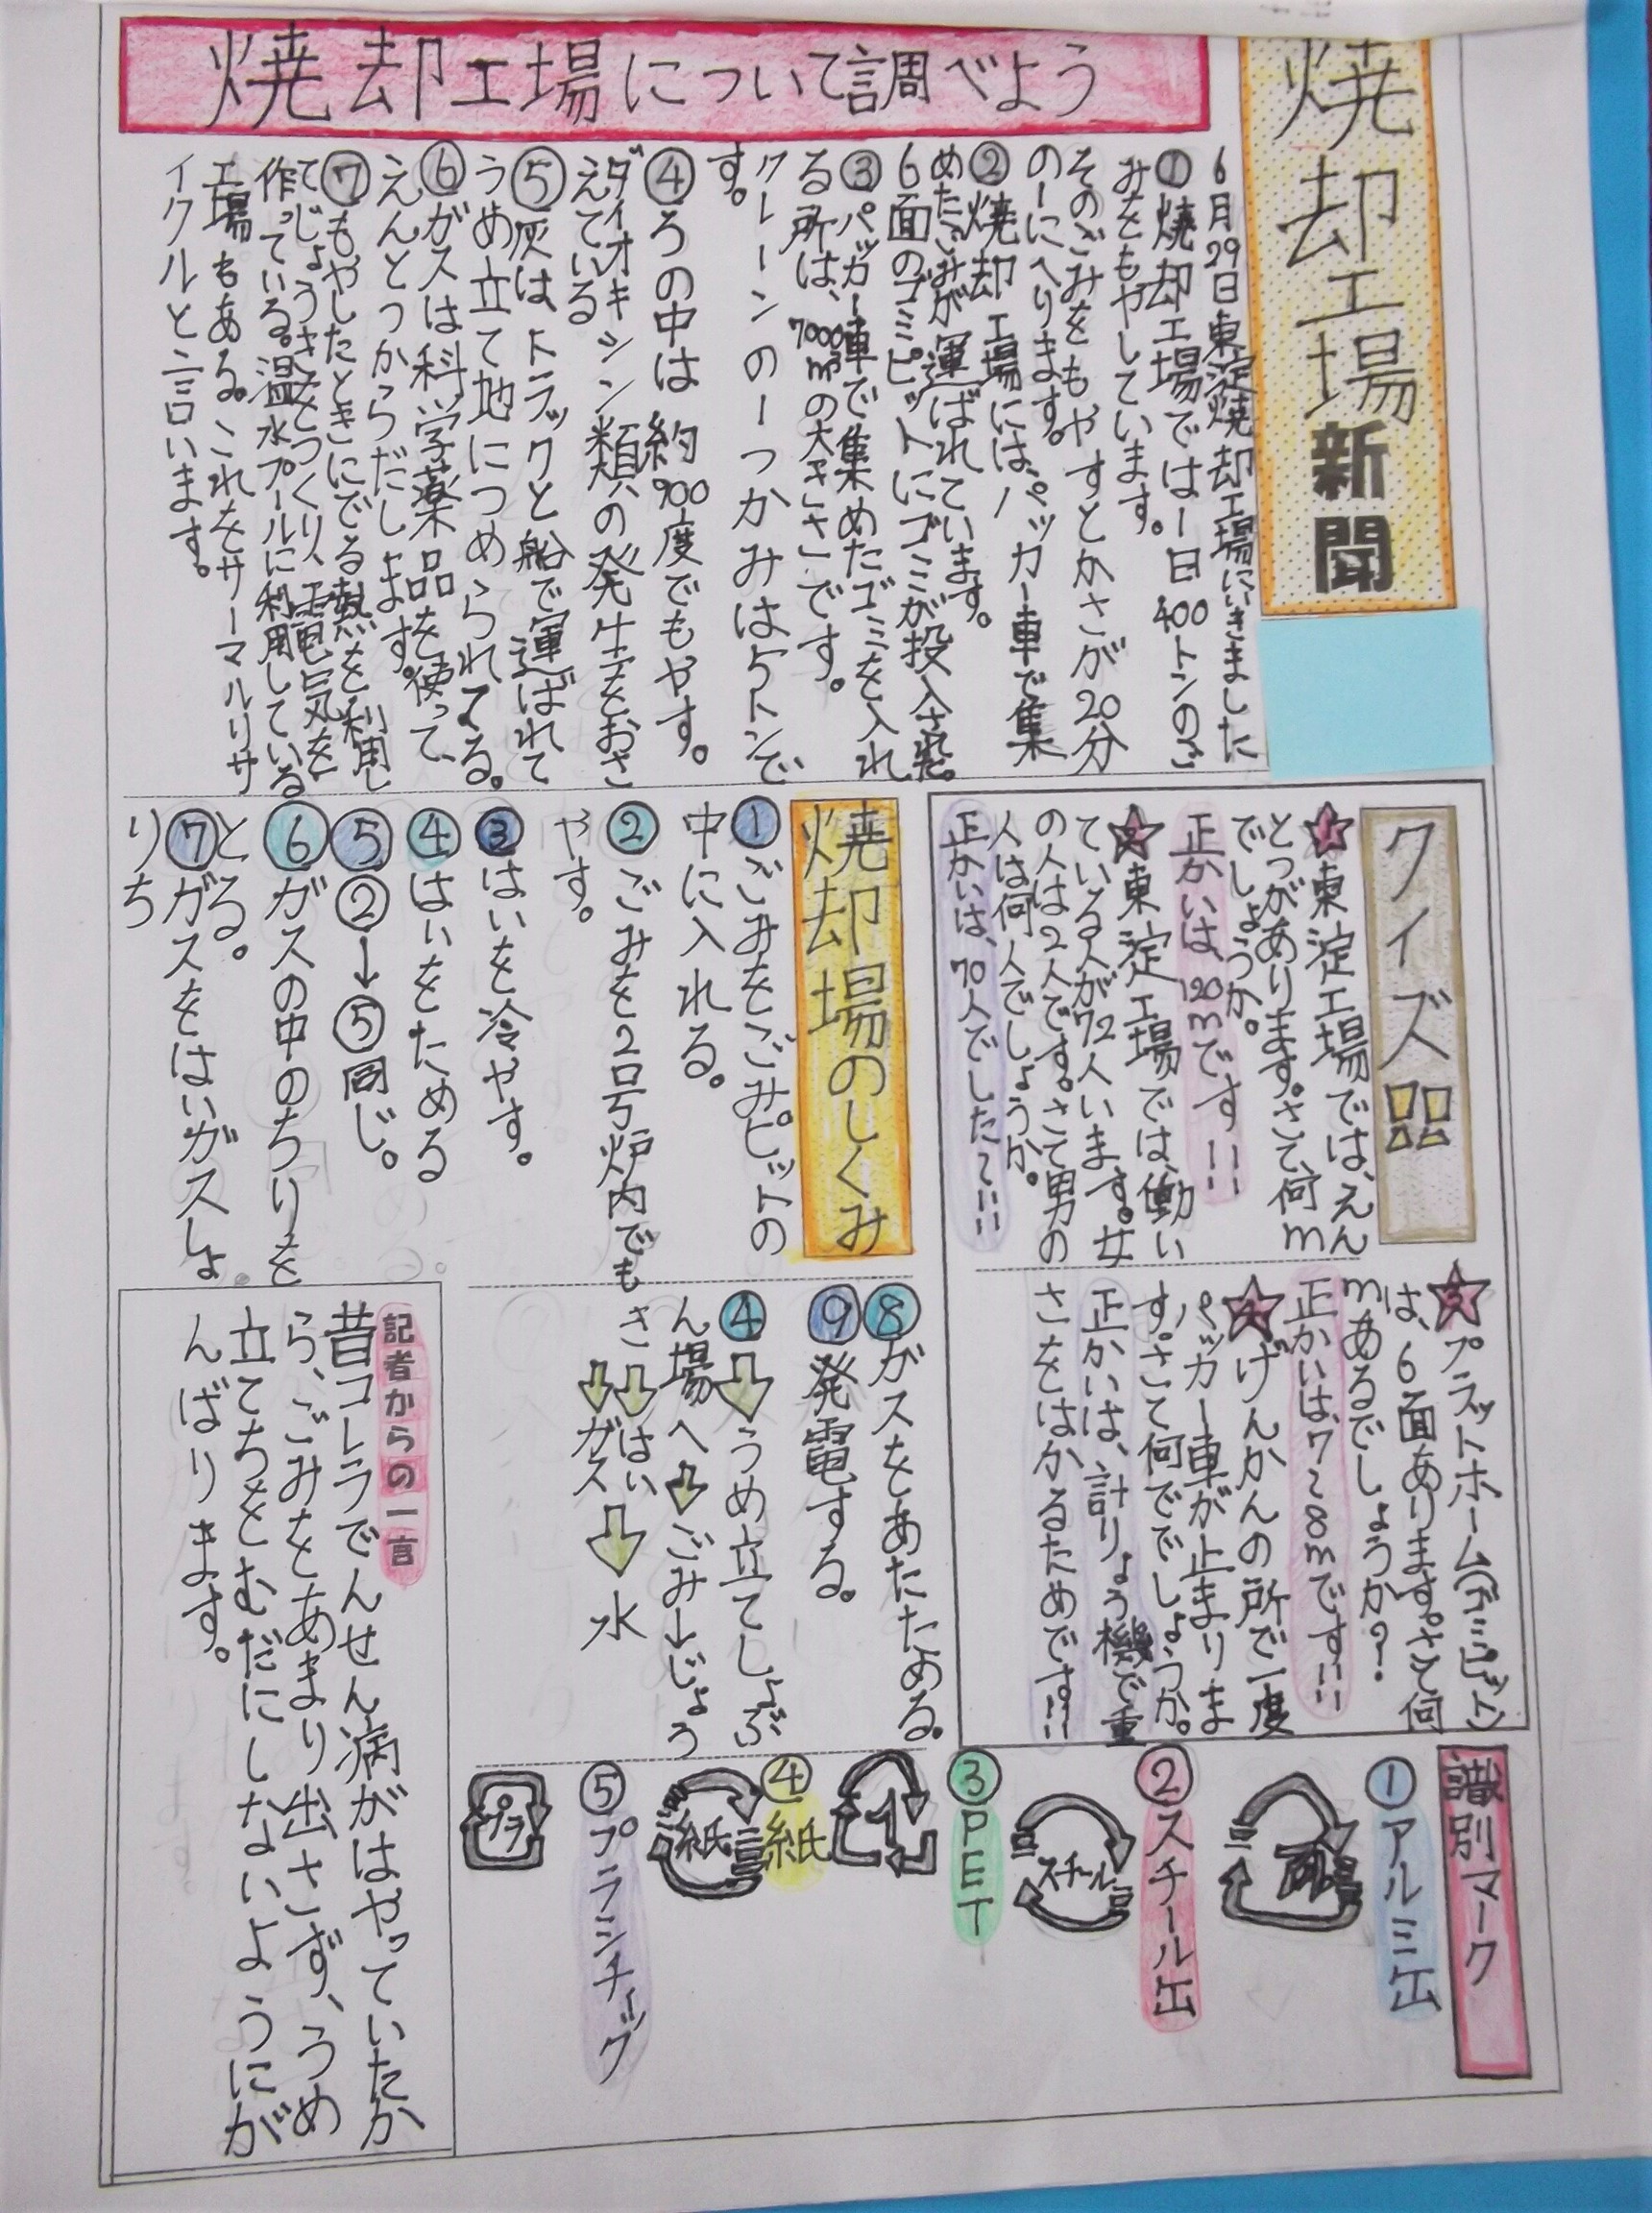 焼却工場新聞
焼却工場について調べよう
6月29日東淀焼却工場にいきました
①焼却工場では一日400トンのご
みをもやしています。
そのごみをもやすとかさが20分
の一にへります。
②焼却工場にはパッカー車で集
めたごみが運ばれています。
6面のゴミピットにゴミが投入され
③パッカー車で集めたゴミを入れ
る所は、7000㎥の大きさです。
クレーンの一つかみは5トンで
す。
④ろの中は約900度でもやす。
ダイオキシン類の発生をおさ
えている
⑤灰はトラックと船で運ばれて
うめ立て地につめられてる。
⑥ガスは科学薬品を使って、
えんとつからだします。
⑦もやしたときにでる熱を利用し
てじょうきをつくり、電気を
作っている。温水プールに利用している
工場もある。これをサーマルリサ
イクルと言います。
クイズ
1東淀工場では、えん
とつがあります。さて何m
でしょうか。
正かいは、120mです!!
2東淀工場では、働い
ている人が72人います。女
の人は2人です。さて男の
人は何人でしょうか。
正かいは、70人でした〜!!
3プラットホーム(ゴミピット)
は、6面あります。さて何
mあるでしょうか?
正かいは、7〜8mです!!
4げんかんの所で一度
パッカー車が止まりま
す。さて何ででしょうか。
正かいは、計りょう機で重
さをはかるためです!!
焼却場のしくみ
①ごみをごみピットの
中に入れる。
②ごみを2号炉内でも
やす。
③はいを冷やす。
④はいをためる
⑤②→⑤同じ。
⑥ガスの中のちりを
とる。
⑦ガスをはいガスしょ
りち
⑧ガスをあたためる。
⑨発電する。
④⇩うめ立てしょぶ
ん場へ⇩ごみ→じょう
さ⇩はい
⇩ガス⇩水
識別マーク
①アルミ缶
②スチール缶
スチール
③PET
1
④紙
紙
⑤プラシチック
プラ
記者からの一言
昔コレラでんせん病がはやっていたか
ら、ごみをあまり出さず、うめ
立てちをむだにしないようにが
んばります。